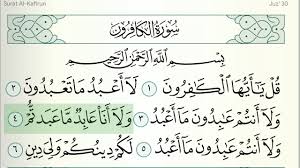 Surat Al-Kafirun Juz' 30
سُورَةُ الكَافِرُونَ
بِسْمِ ٱللَّهِ ٱلرَّحْمَٰنِ ٱلرَّحِيمِ
قُلْ يَٰٓأَيُّهَا ٱلْكَٰفِرُونَ ١ لَآ أَعْبُدُ مَا تَعْبُدُونَ ٢
وَلَآ أَنتُمْ عَٰبِدُونَ مَآ أَعْبُدُ ٣ وَلَآ أَنَا۠ عَابِدٌ مَّا عَبَدتُّمْ ٤
وَلَآ أَنتُمْ عَٰبِدُونَ مَآ أَعْبُدُ ٥ لَكُمْ دِينُكُمْ وَلِىَ دِينِ ٦